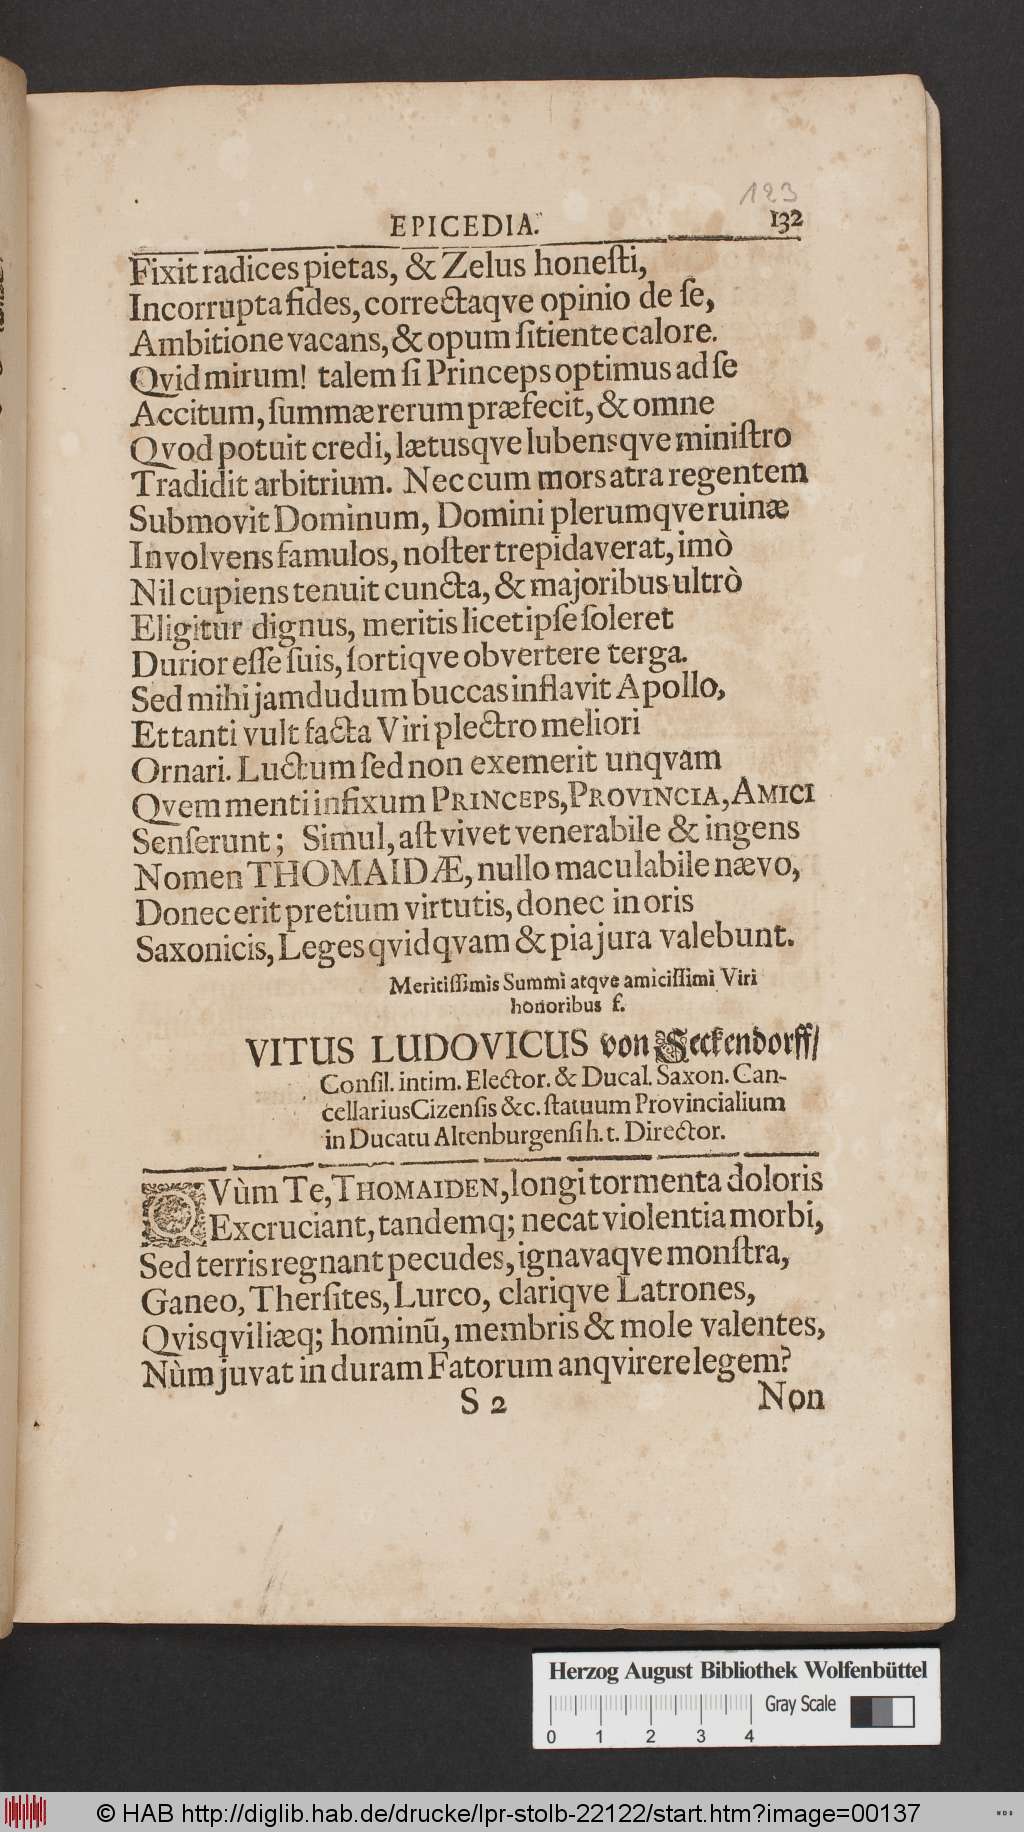 123
EPICEDIA. 132
Fixit radices pietas, & Zelus honeſti,
Incorrupta fides, correctaqve opinio de ſe,
Ambitione vacans, & opum ſitiente calore.
Qvid mirum! talem ſi Princeps optimus ad ſe
Accitum, ſummæ rerum præfecit, & omne
Qvod potuit credi, lætusqve lubensqve miniſtro
Tradidit arbitrium. Nec cum mors atra regentem
Submovit Dominum, Domini plerumqve ruinæ
Involvens famulos, noſter trepidaverat, imò
Nil cupiens tenuit cuncta, & majoribus ultrò
Eligitur dignus, meritis licet ipſe ſoleret
Durior eſſe ſuis, ſortiqve obvertere terga.
Sed mihi jamdudum buccas inflavit Apollo,
Et tanti vult facta Viri plectro meliori
Ornari. Luctum ſed non exemerit unqvam
Qvem menti infixum PRINCEPS, PROVINCIA, AMICI
Senſerunt; Simul, aſt vivet venerabile & ingens
Nomen THOMAIDÆ, nullo maculabile nævo,
Donec erit pretium virtutis, donec in oris
Saxonicis, Leges qvidqvam & pia jura valebunt.
Meritiſſimis Summi atqve amiciſſimi Viri
honoribus f.
VITUS LUDOVICUS von Seckendorff/
Conſil. intim. Elector. & Ducal. Saxon. Can-
cellarius Cizenſis &c. ſtatuum Provincialium
in Ducatu Altenburgenſi h. t. Director.
QVùm Te, THOMAIDEN, longi tormenta doloris
Excruciant, tandemq; necat violentia morbi,
Sed terris regnant pecudes, ignavaqve monſtra,
Ganeo, Therſites, Lurco, clariqve Latrones,
Qvisqviliæq; hominũ, membris & mole valentes,
Nùm juvat in duram Fatorum anqvirere legem?
S 2 Non
Herzog August Bibliothek Wolfenbüttel
Gray Scale
0 1 2 3 4
© HAB http://diglib.hab.de/drucke/lpr-stolb-22122/start.htm?image=00137